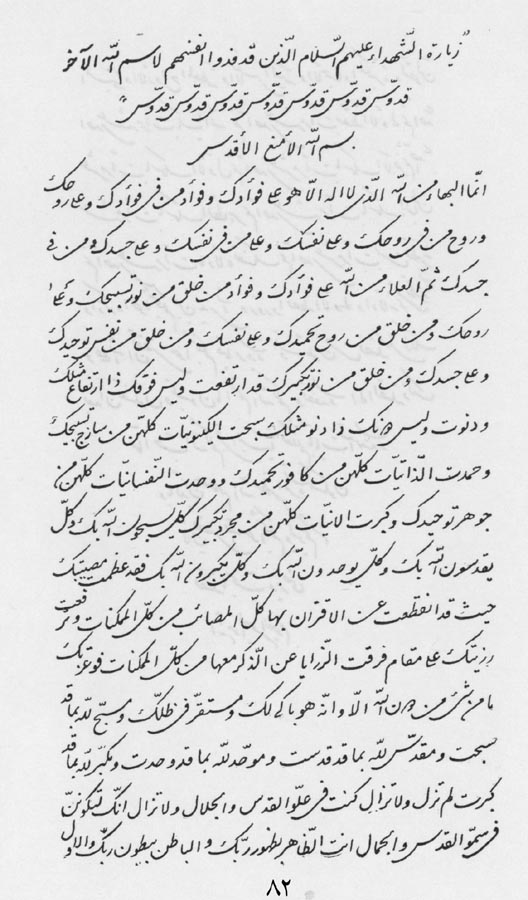 "زیارة الشّهداء علیهم السّلام الّذین قد فدوا انفسهم لاسم اللّه الآخر
قدّوس قدّوس قدّوس قدّوس قدّوس قدّوس قدّوس"
بسم اللّه الأمنع الأقدس
انّما البهاء من اللّه الّذی لا اله الّا هو علی فؤادک و فؤاد من فی فؤادک و علی روحک
و روح من فی روحک و علی نفسک و علی من فی نفسک و علی جسدک و من فی
جسدک ثمّ العلاء من اللّه علی فؤادک و فؤاد من خلق من نور تسبیحک و علی
روحک و من خلق من روح تحمیدک و علی نفسک و من خلق من نفس توحیدک
و علی جسدک و من خلق من نور تکبیرک قد ارتفعت و لیس فوقک ذا ارتفاع مثلک
و دنوت و لیس دونک ذا دنو مثلک سبحت الکینونیّات کلهنّ من ساذج تسبیحک
و حمدت الذّاتیّات کلهنّ من کافور تحمیدک و وحدت النّفسانیّات کلهنّ من
جوهر توحیدک و کبرت الانیّات کلهنّ من مجرد تکبیرک کلّ یسبحون اللّه بک و کلّ
یقدسون اللّه بک و کلّ یوحدون اللّه بک و کلّ یکبرون اللّه بک فقد عظمت مصیبتک
حیث قد انقطعت عن الاقتران بها کلّ المصائب من کلّ الممکنات و ترفّعت
رزیتک علی مقام فرقت الرّزایا عن الذّکر معها من کلّ الممکنات فو عزّتک
ما من شئ من دون اللّه الّا و انّه هو باکی لک و مستقرّ فی ظلّک و مسبّح للّه بما قد
سبحت و مقدّس للّه بما قد قدست و موحّد للّه بما قد وحدت و مکبّر للّه بما قد
کبرت لم تزل و لا تزال کنت فی علوّ القدس و الجلال و لا تزال انّک لتکوننّ
فی سموّ القدس و الجمال انت الظّاهر بظهور ربّک و الباطن ببطون ربّک و الاول
۸۲